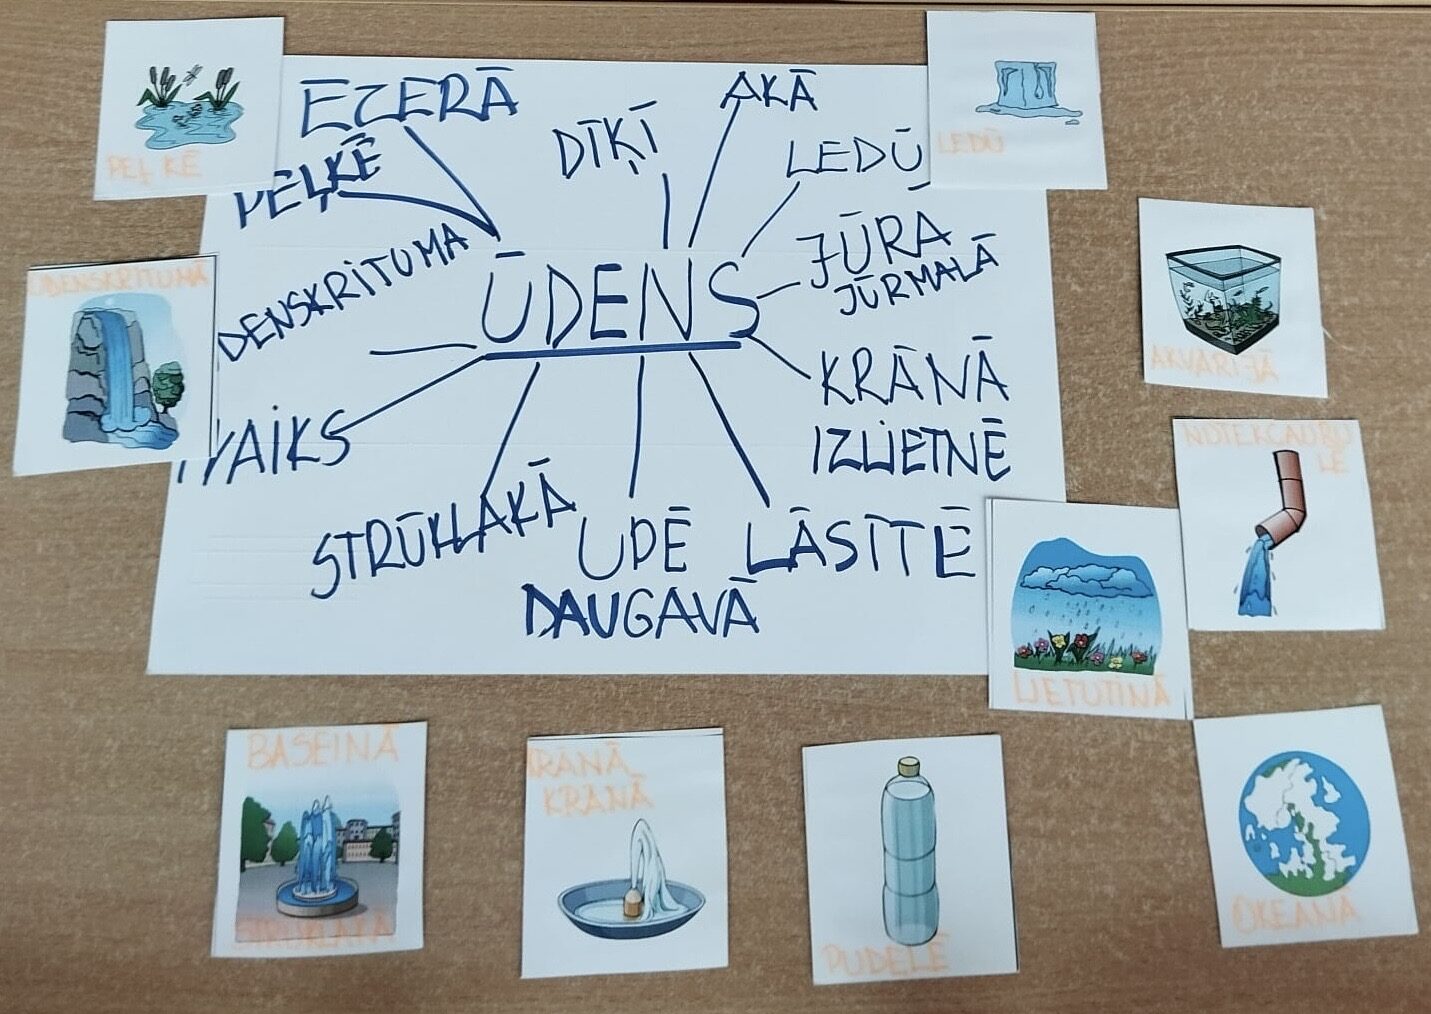 EZERĀ
PEĻĶĒ
DĪĶĪ
AKĀ
LEDŪ
JŪRA
JŪRMALĀ
DENSKRITUMA
ŪDENS
KRĀNĀ
IZLIETNĒ
VAIKS
STRŪKLAKĀ
UPĒ
DAUGAVĀ
LĀSĪTĒ
PEĻĶĒ
LEDŪ
ŪDENSKRITUMĀ
AKVĀRIJĀ
NOTEKCAURU
LĒ
LIETUTIŅĀ
BASEINĀ
STRŪKLAKĀ
KRĀNĀ
PUDELĒ
OKEĀNĀ